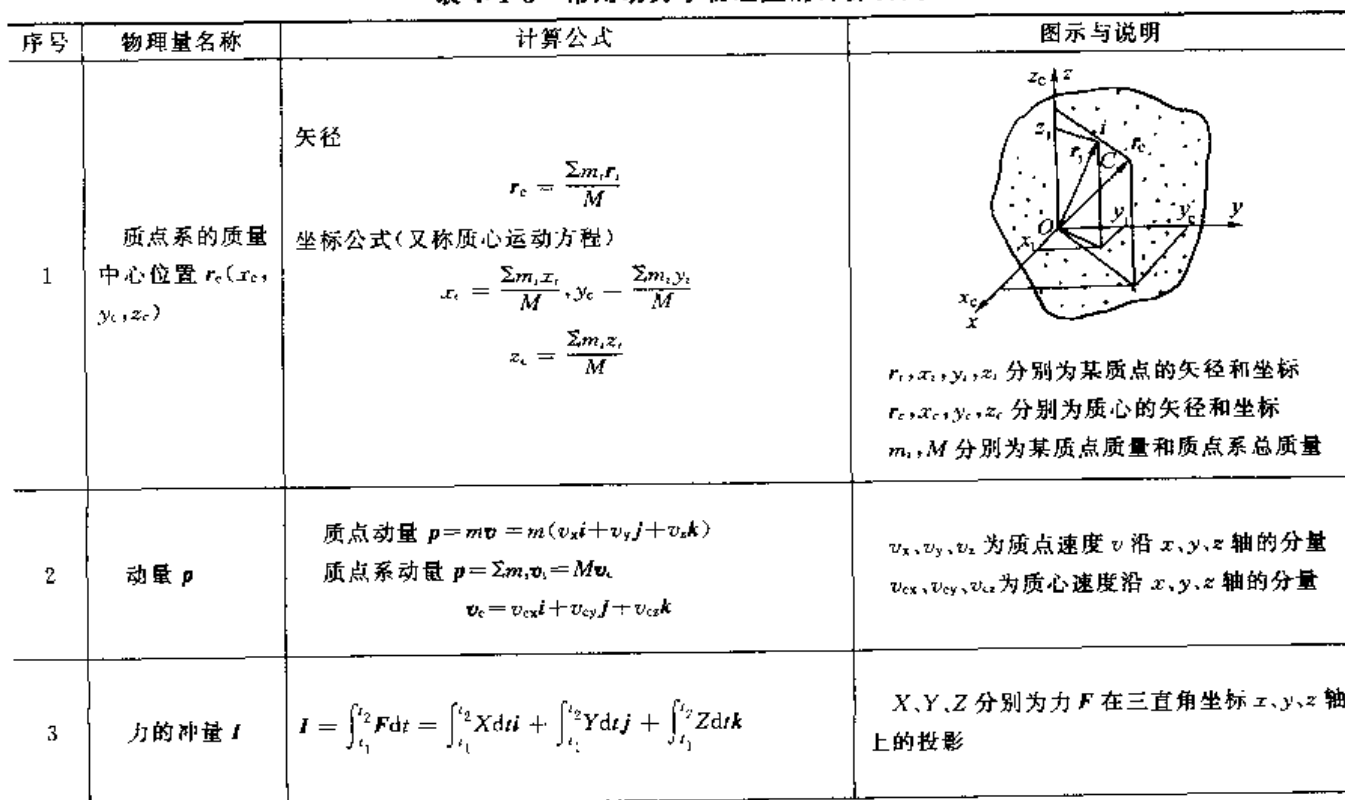 序号 物理量名称 计算公式 图示与说明
1
质点系的质量
中心位置 r_c(x_c,
y_c,z_c)
矢径
r_c = Σm_i r_i / M
坐标公式(又称质心运动方程)
x_c = Σm_i x_i / M , y_c = Σm_i y_i / M
z_c = Σm_i z_i / M
z_C z
z_i i
r_i C r_c
O y_i y_c y
x_i
x_C
x
r_i,x_i,y_i,z_i 分别为某质点的矢径和坐标
r_c,x_c,y_c,z_c 分别为质心的矢径和坐标
m_i,M 分别为某质点质量和质点系总质量
2
动量 p
质点动量 p=mv=m(v_x i+v_y j+v_z k)
质点系动量 p=Σm_i v_i=Mv_c
v_c=v_cx i+v_cy j+v_cz k
v_x、v_y、v_z 为质点速度 v 沿 x、y、z 轴的分量
v_cx、v_cy、v_cz 为质心速度沿 x、y、z 轴的分量
3
力的冲量 I
I = ∫_{t_1}^{t_2} Fdt = ∫_{t_1}^{t_2} Xdti + ∫_{t_1}^{t_2} Ydtj + ∫_{t_1}^{t_2} Zdtk
X、Y、Z 分别为力 F 在三直角坐标 x、y、z 轴
上的投影